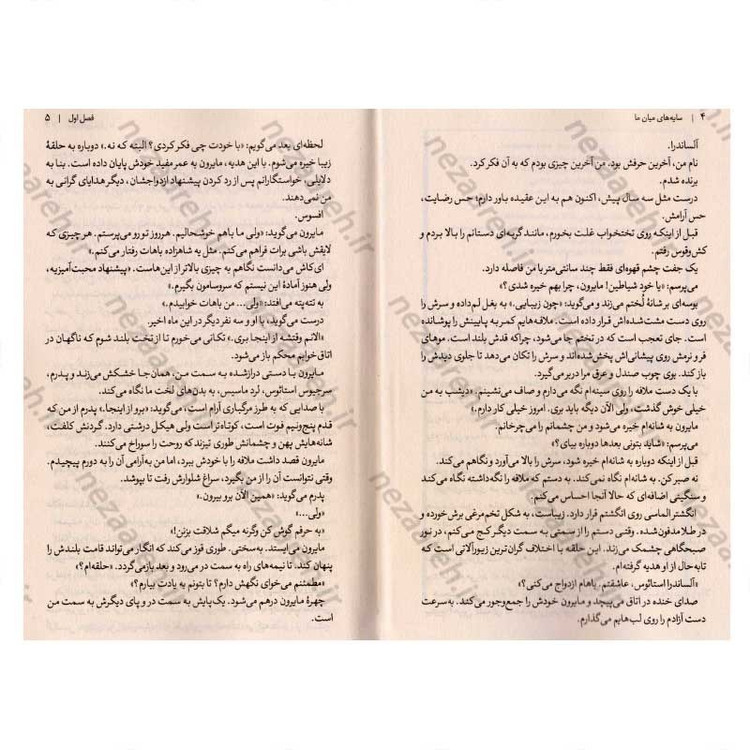 ۴ | سایه‌های میان ما
آلساندرا.
نام من، آخرین حرفش بود. من آخرین چیزی بودم که به آن فکر کرد.
برنده شدم.
درست مثل سه سال پیش، اکنون هم به این عقیده باور دارم؛ حس رضایت،
حس آرامش.
قبل از اینکه روی تختخواب غلت بخورم، مانند گربه‌ای دستانم را بالا بردم و
کش‌وقوس رفتم.
یک جفت چشم قهوه‌ای فقط چند سانتی‌متر با من فاصله دارد.
می‌پرسم: «یا خود شیاطین! مایرون، چرا بهم خیره شدی؟»
بوسه‌ای بر شانهٔ لُختم می‌زند و می‌گوید: «چون زیبایی.» به بغل لم داده و سرش را
روی دست مشت‌شده‌اش قرار داده است. ملافه‌هایم کمر به پایینش را پوشانده
است. جای تعجب است که در تختم جا می‌شود، چراکه قدش بلند است. موهای
فر و نرمش روی پیشانی‌اش پخش شده‌اند و سرش را تکان می‌دهد تا جلوی دیدش را
باز کند. بوی چوب صندل و عرق مرا دربر می‌گیرد.
با یک دست ملافه را روی سینه‌ام نگه می‌دارم و صاف می‌نشینم. «دیشب به من
خیلی خوش گذشت، ولی الآن دیگه باید بری. امروز خیلی کار دارم.»
مایرون به شانه‌ام خیره می‌شود و من چشمانم را می‌چرخانم.
می‌پرسم: «شاید بتونی بعدها دوباره بیای؟»
قبل از اینکه دوباره به شانه‌ام خیره شود، سرش را بالا می‌آورد و نگاهم می‌کند.
نه صبر کن. به شانه‌ام نگاه نمی‌کند. به دستم که ملافه را نگه‌داشته نگاه می‌کند
و سنگینی اضافه‌ای که حالا آنجا احساس می‌کنم.
انگشتر الماسی روی انگشتم قرار دارد. زیباست، به شکل تخم‌مرغی برش خورده و
در طلا مدفون شده. وقتی دستم را از سمتی به سمت دیگر کج می‌کنم، در نور
صبحگاهی چشمک می‌زند. این حلقه با اختلاف گران‌ترین زیورآلاتی است که
تابه‌حال از او هدیه گرفته‌ام.
«آلساندرا استاتوس، عاشقتم. باهام ازدواج می‌کنی؟»
صدای خنده در اتاق می‌پیچد و مایرون خودش را جمع‌وجور می‌کند. به‌سرعت
دست آزادم را روی لب‌هایم می‌گذارم.
فصل اول | ۵
لحظه‌ای بعد می‌گویم: «با خودت چی فکر کردی؟ البته که نه.» دوباره به حلقهٔ
زیبا خیره می‌شوم. با این هدیه، مایرون به عمر مفید خودش پایان داده است. بنا به
دلایلی، خواستگارانم پس از رد کردن پیشنهاد ازدواجشان، دیگر هدایای گرانی به
من نمی‌دهند.
افسوس.
مایرون می‌گوید: «ولی ما با هم خوشحالیم. هر روز تو رو می‌پرستم. هر چیزی که
لایقش باشی برات فراهم می‌کنم. مثل یه شاهزاده باهات رفتار می‌کنم.»
ای کاش می‌دانست نگاهم به چیزی بالاتر از این‌هاست. «پیشنهاد محبت‌آمیزیه،
ولی هنوز آمادهٔ این نیستم که سروسامون بگیرم.»
به تته‌پته می‌افتد: «ولی... من باهات خوابیدم.»
درست می‌گوید، با او و سه نفر دیگر در این ماه اخیر.
«الآنم وقتشه از اینجا بری.» تکانی می‌خورم تا از تخت بلند شوم که ناگهان در
اتاق خوابم محکم باز می‌شود.
مایرون با دستی درازشده به سمت من، همان‌جا خشکش می‌زند و پدرم،
سرجیوس استاتوس، لرد ماسیس، به بدن‌های لخت ما نگاه می‌کند.
با صدایی که به طرز مرگباری آرام است، می‌گوید: «برو از اینجا.» پدرم از من که
قدم پنج‌ونیم فوت است، کوتاه‌تر است ولی هیکل درشتی دارد. گردنش کلفت،
شانه‌هایش پهن و چشمانش طوری تیزند که روحت را سوراخ می‌کنند.
مایرون قصد داشت ملافه را با خودش ببرد، اما من به‌آرامی آن را به دورم پیچیدم.
وقتی نتوانست آن را از من بگیرد، سراغ شلوارش رفت تا بپوشد.
پدرم می‌گوید: «همین الآن برو بیرون.»
«ولی...»
«به حرفم گوش کن وگرنه میگم شلاقت بزنن!»
مایرون می‌ایستد. به‌سختی. طوری قوز می‌کند که انگار می‌تواند قامت بلندش را
پنهان کند. تا نیمه‌های راه به سمت در می‌رود و بعد بازمی‌گردد. «حلقه‌ام؟»
«مطمئنم می‌خوای نگهش دارم؟ تا بتونم به یادت بیارم؟»
چهرهٔ مایرون درهم می‌شود. یک پایش به سمت در و پای دیگرش به سمت من
است.
nezaareh.ir